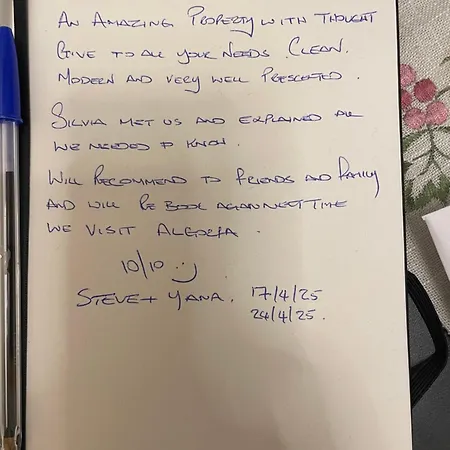 An Amazing Property with Thought
Give to all your needs. Clean.
Modern and very well Presented.
Silvia met us and explained all
we needed to know.
Will Recommend to friends and Family
and will Re Book again next time
we visit
10/10 :)
Steve + Yana. 17/4/25
24/4/25.